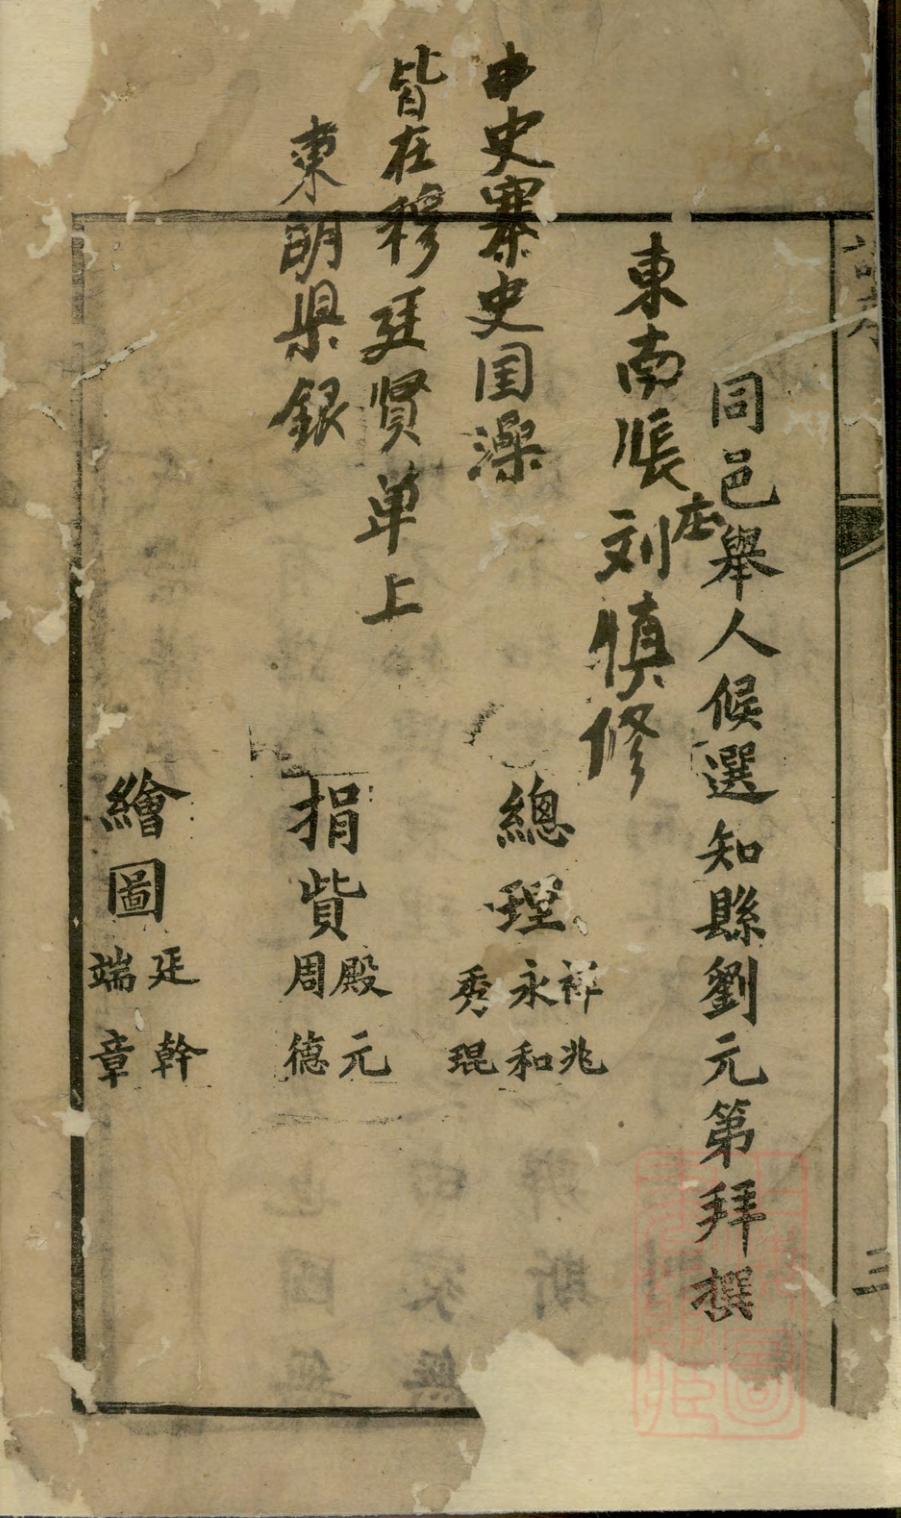 同邑舉人候選知縣劉元第拜撰
東南張庄刘慎修
中史寨史国澡
皆在穆廷贤单上
東明県銀
總理
祥兆
永和
秀琨
捐貲
殿元
周德
繪圖
廷幹
端章
三